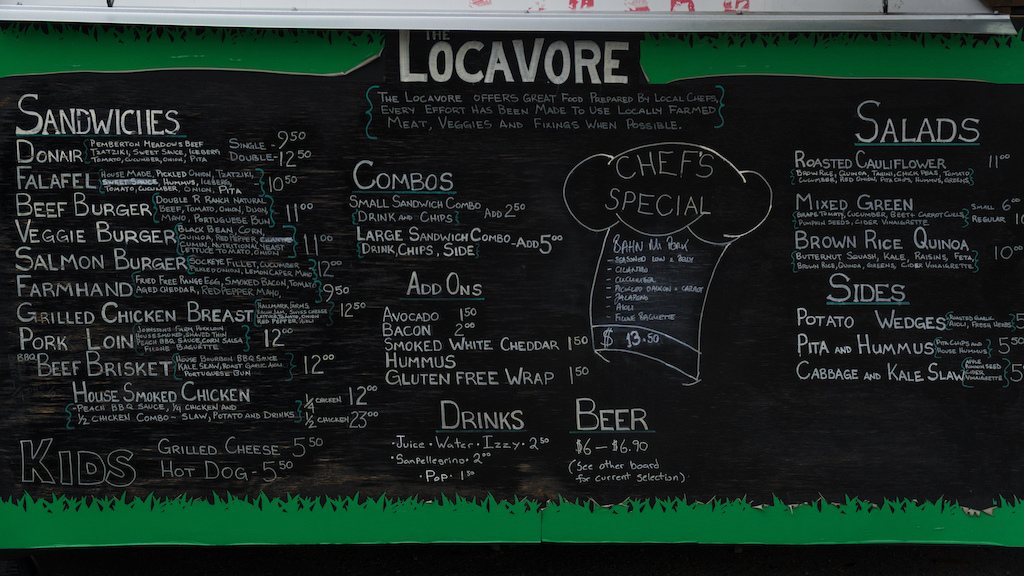 THE
LOCAVORE
THE LOCAVORE OFFERS GREAT FOOD PREPARED BY LOCAL CHEFS,
EVERY EFFORT HAS BEEN MADE TO USE LOCALLY FARMED
MEAT, VEGGIES AND FIXINGS WHEN POSSIBLE.
SANDWICHES
DONAIR PEMBERTON MEADOWS BEEF SINGLE - 9.50
TZATZIKI, SWEET SAUCE, ICEBERG DOUBLE - 12.50
TOMATO, CUCUMBER, ONION, PITA
FALAFEL HOUSE MADE, PICKLED ONION, TZATZIKI, 10.50
SWEET SAUCE, HUMMUS, ICEBERG,
TOMATO, CUCUMBER, ONION, PITA
BEEF BURGER DOUBLE R RANCH NATURAL 11.00
BEEF, TOMATO, ONION, DIJON
MAYO, PORTUGUESE BUN
VEGGIE BURGER BLACK BEAN, CORN, 11.00
QUINOA, RED PEPPER,
CUMIN, NUTRITIONAL YEAST
LETTUCE, TOMATO, ONION
SALMON BURGER SOCKEYE FILLET, COLESLAW 12.00
PICKLED ONION, LEMON CAPER MAYO
FARMHAND FRIED FREE RANGE EGG, SMOKED BACON, TOMATO, 9.50
AGED CHEDDAR, RED PEPPER MAYO
GRILLED CHICKEN BREAST HALLMARK FARMS, 12.50
ONION JAM, SWISS CHEESE
LETTUCE, TOMATO, ONION
RED PEPPER, AIOLI
PORK LOIN JOHNSTONS FARM PORKLOIN 12.00
HOUSE SMOKED, SHAVED THIN
PEACH BBQ SAUCE, CORN SALSA
FICELLE BAGUETTE
BBQ BEEF BRISKET HOUSE BOURBON BBQ SAUCE 12.00
KALE SLAW, ROAST GARLIC AIOLI
PORTUGUESE BUN
HOUSE SMOKED CHICKEN
- PEACH BBQ SAUCE, 1/4 CHICKEN AND 1/4 CHICKEN 12.00
1/2 CHICKEN COMBO - SLAW, POTATO AND DRINKS 1/2 CHICKEN 23.00
KIDS
GRILLED CHEESE - 5.50
HOT DOG - 5.50
COMBOS
SMALL SANDWICH COMBO ADD 2.50
DRINK AND CHIPS
LARGE SANDWICH COMBO - ADD 5.00
DRINK, CHIPS, SIDE
ADD ONS
AVOCADO 1.50
BACON 2.00
SMOKED WHITE CHEDDAR 1.50
HUMMUS
GLUTEN FREE WRAP 1.50
DRINKS
• Juice • Water • Izzy • 2.50
• San Pellegrino • 2.00
• Pop • 1.50
BEER
$6 - $6.90
(See other board
for current selection)
CHEF'S
SPECIAL
BAHN Mi PORK
- CILANTRO
- CUCUMBER
- PICKLED DAIKON + CARROT
- JALAPENO
- AIOLI
- FICELLE BAGUETTE
$ 13.50
SALADS
ROASTED CAULIFLOWER 11.00
BROWN RICE, QUINOA, TAHINI, CHICK PEAS, TOMATO
CUCUMBER, RED ONION, PITA CHIPS, HUMMUS, GREENS
MIXED GREEN SMALL 6.00
GRAPE TOMATO, CUCUMBER, BEET + CARROT CURLS REGULAR 10
PUMPKIN SEEDS, CIDER VINAIGRETTE
BROWN RICE QUINOA 10.00
BUTTERNUT SQUASH, KALE, RAISINS, FETA
BROWN RICE, QUINOA, GREENS, CIDER VINAIGRETTE
SIDES
POTATO WEDGES ROASTED GARLIC 5
AIOLI, FRESH HERBS
PITA AND HUMMUS PITA CHIPS AND 5.50
HOUSE HUMMUS
CABBAGE AND KALE SLAW APPLE 5
PUMPKIN SEED
CIDER
VINAIGRETTE